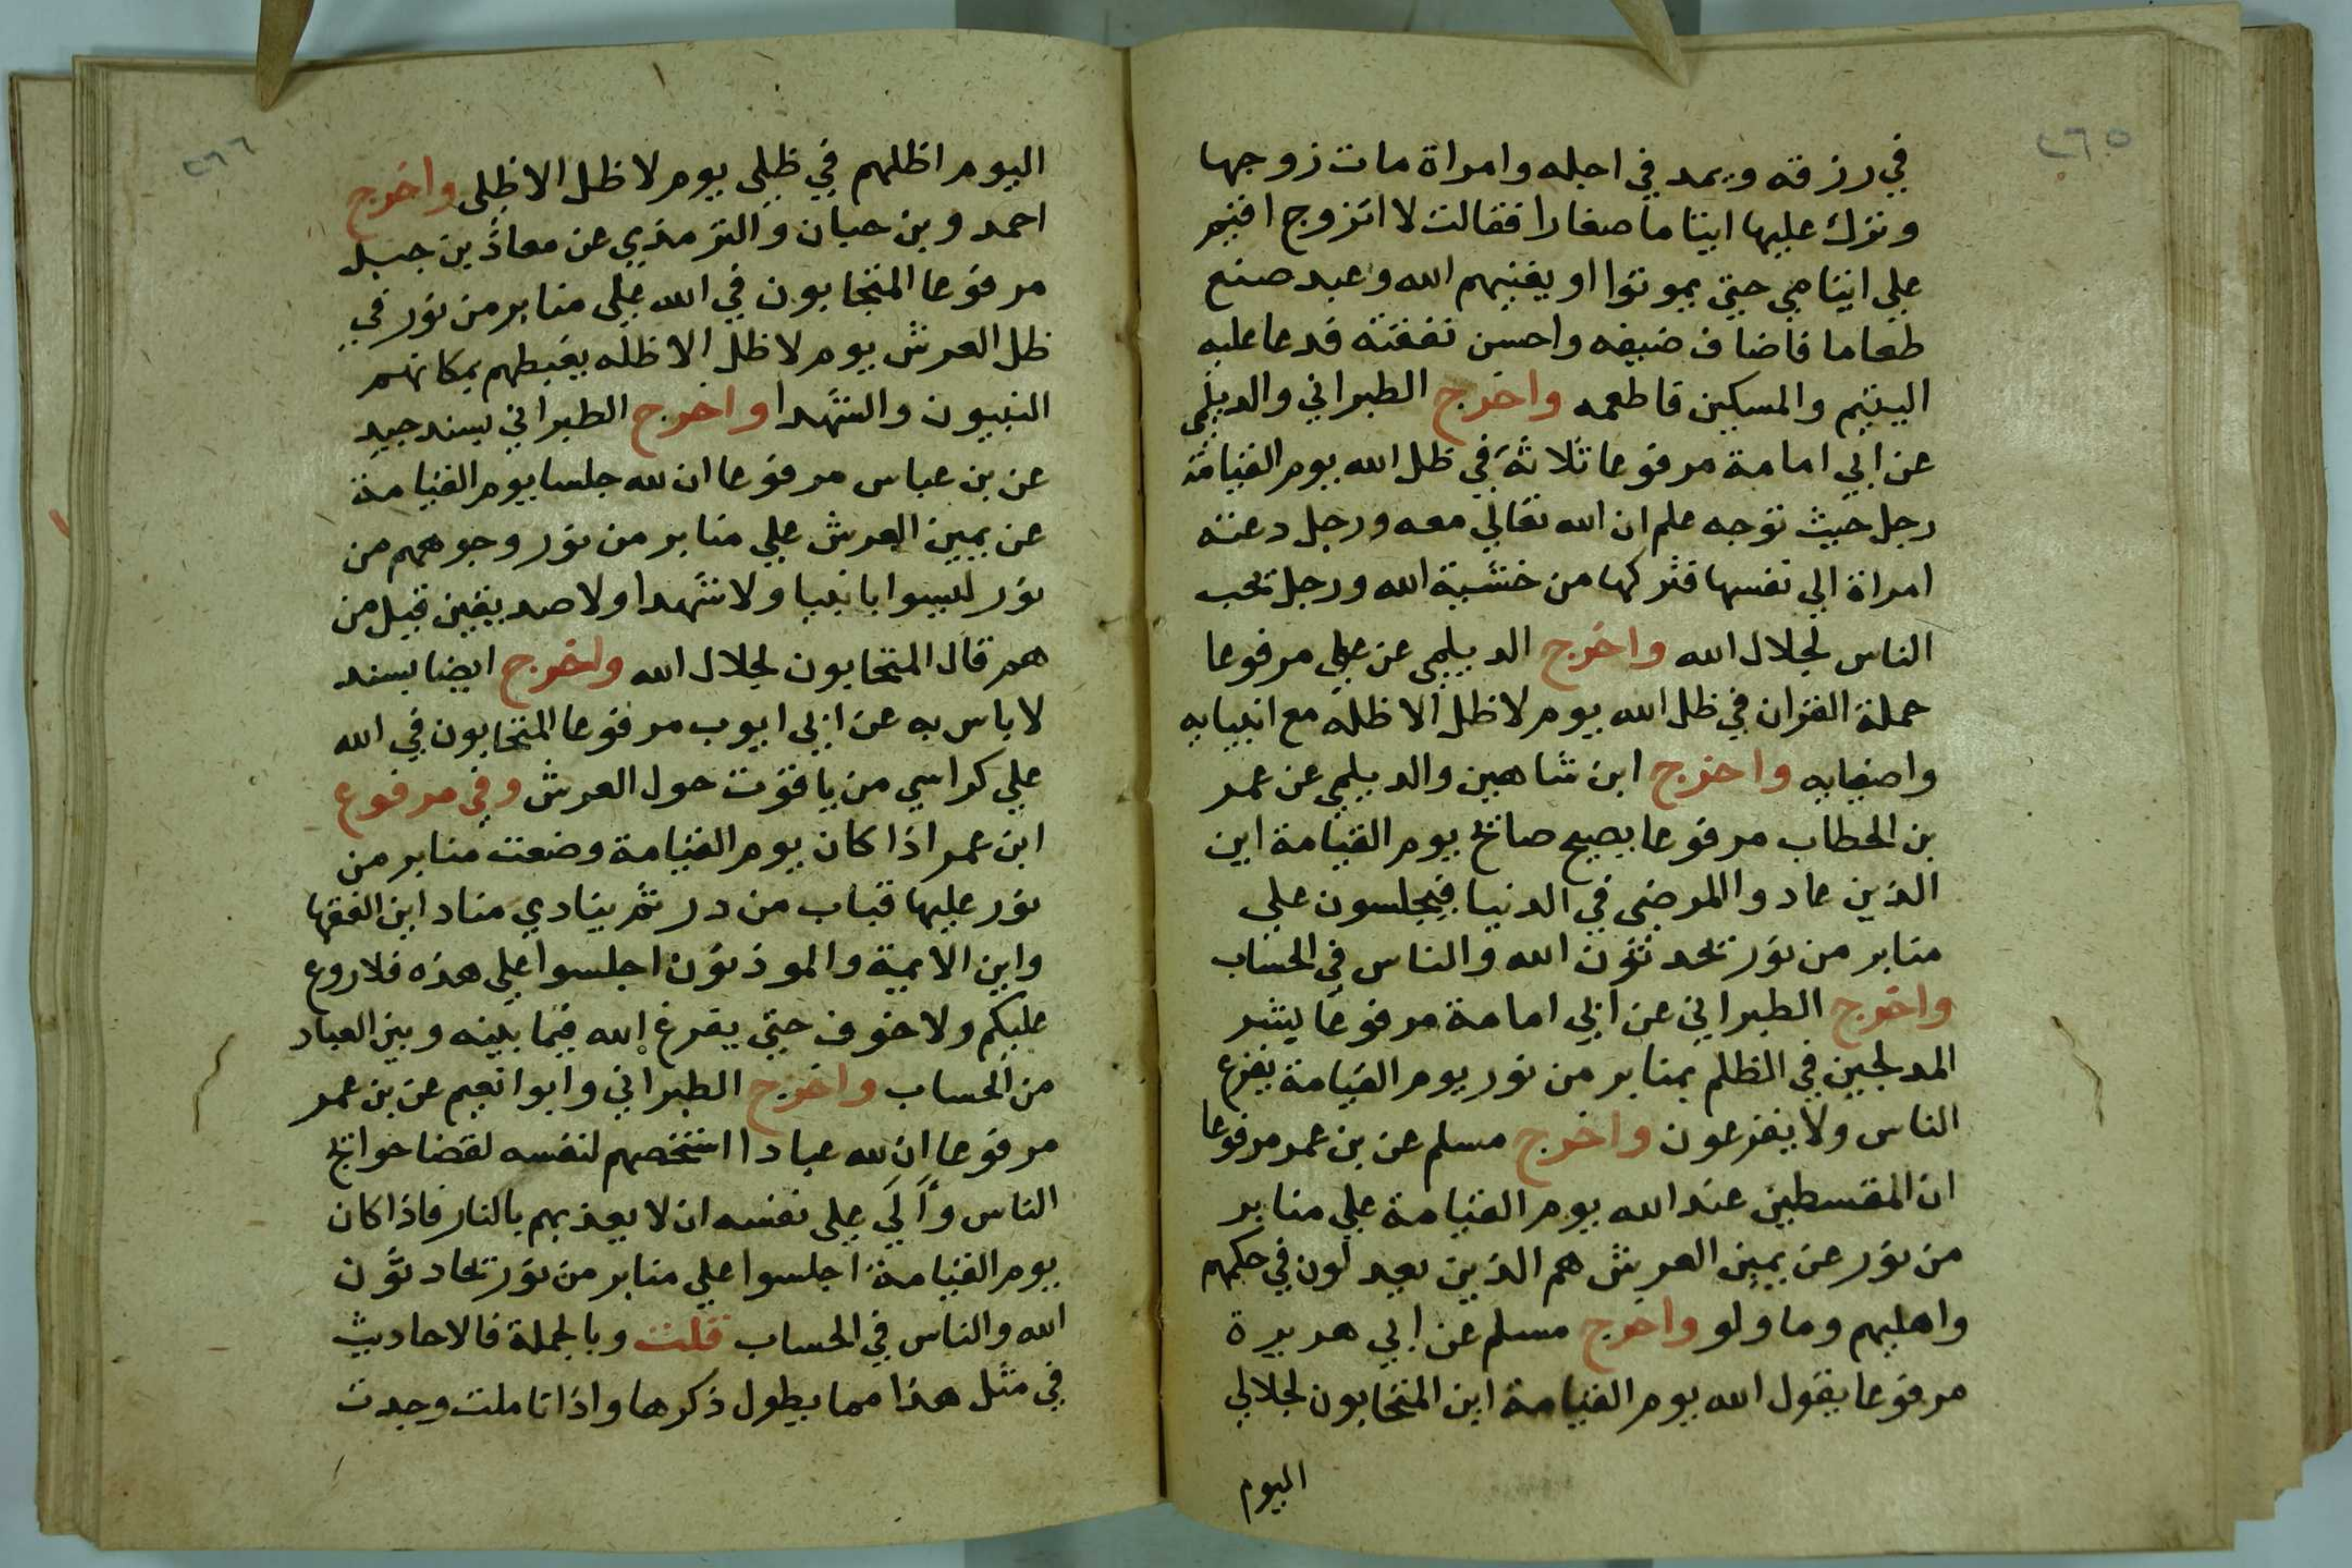 ٢٦٥
في رزقه ويمد في اجله وامراة مات زوجها
وترك عليها ايتاما صغارا فقالت لا اتزوج اقيم
علي ايتامي حتي يموتوا او يغنيهم الله وعبد صنع
طعاما فاضاف ضيفه واحسن نفقته فدعا عليه
اليتيم والمسكين فاطعمه واخرج الطبراني والديلمي
عن ابي امامة مرفوعا ثلاثة في ظل الله يوم القيامة
رجل حيث توجه علم ان الله تعالي معه ورجل دعته
امراة الي نفسها فتركها من خشية الله ورجل يحب
الناس لجلال الله واخرج الديلمي عن علي مرفوعا
حملة القران في ظل الله يوم لا ظل الا ظله مع انبيايه
واصفيايه واخرج ابن شاهين والديلمي عن عمر
بن الخطاب مرفوعا يصيح صايح يوم القيامة اين
الذين عادوا المرضي في الدنيا فيجلسون علي
منابر من نور تحدثون الله والناس في الحساب
واخرج الطبراني عن ابي امامة مرفوعا يشر
المدلجين في الظلم بمنابر من نور يوم القيامة يفزع
الناس ولا يفزعون واخرج مسلم عن بن عمر مرفوعا
ان المقسطين عند الله يوم القيامة علي منابر
من نور عن يمين العرش هم الذين يعدلون في حكمهم
واهليهم وما ولو واخرج مسلم عن ابي هريرة
مرفوعا يقول الله يوم القيامة اين المتحابون لجلالي
اليوم
٢٦٦
اليوم اظلهم في ظلي يوم لا ظل الا ظلي واخرج
احمد وبن حبان والترمذي عن معاذ بن جبل
مرفوعا المتحابون في الله علي منابر من نور في
ظل العرش يوم لا ظل الا ظله يغبطهم بمكانهم
النبيون والشهدا واخرج الطبراني بسند جيد
عن بن عباس مرفوعا ان لله جلسا يوم القيامة
عن يمين العرش علي منابر من نور وجوههم من
نور ليسوا بانبيا ولا شهدا ولا صديقين قيل من
هم قال المتحابون لجلال الله واخرج ايضا بسند
لا باس به عن ابي ايوب مرفوعا المتحابون في الله
علي كراسي من ياقوت حول العرش وفي مرفوع
ابن عمر اذا كان يوم القيامة وضعت منابر من
نور عليها قباب من در ثم ينادي مناد اين الفقها
واين الايمة والموذنون اجلسوا علي هذه فلا روع
عليكم ولا خوف حتي يفرغ الله فيما بينه وبين العباد
من الحساب واخرج الطبراني وابوا نعيم عن بن عمر
مرفوعا ان لله عبادا استخصهم لنفسه لقضا حوايج
الناس وآلي علي نفسه ان لا يعذبهم بالنار فاذا كان
يوم القيامة اجلسوا علي منابر من نور تحادثون
الله والناس في الحساب قلت وبالجملة فالاحاديث
في مثل هذا مما يطول ذكرها واذا تاملت وجدت